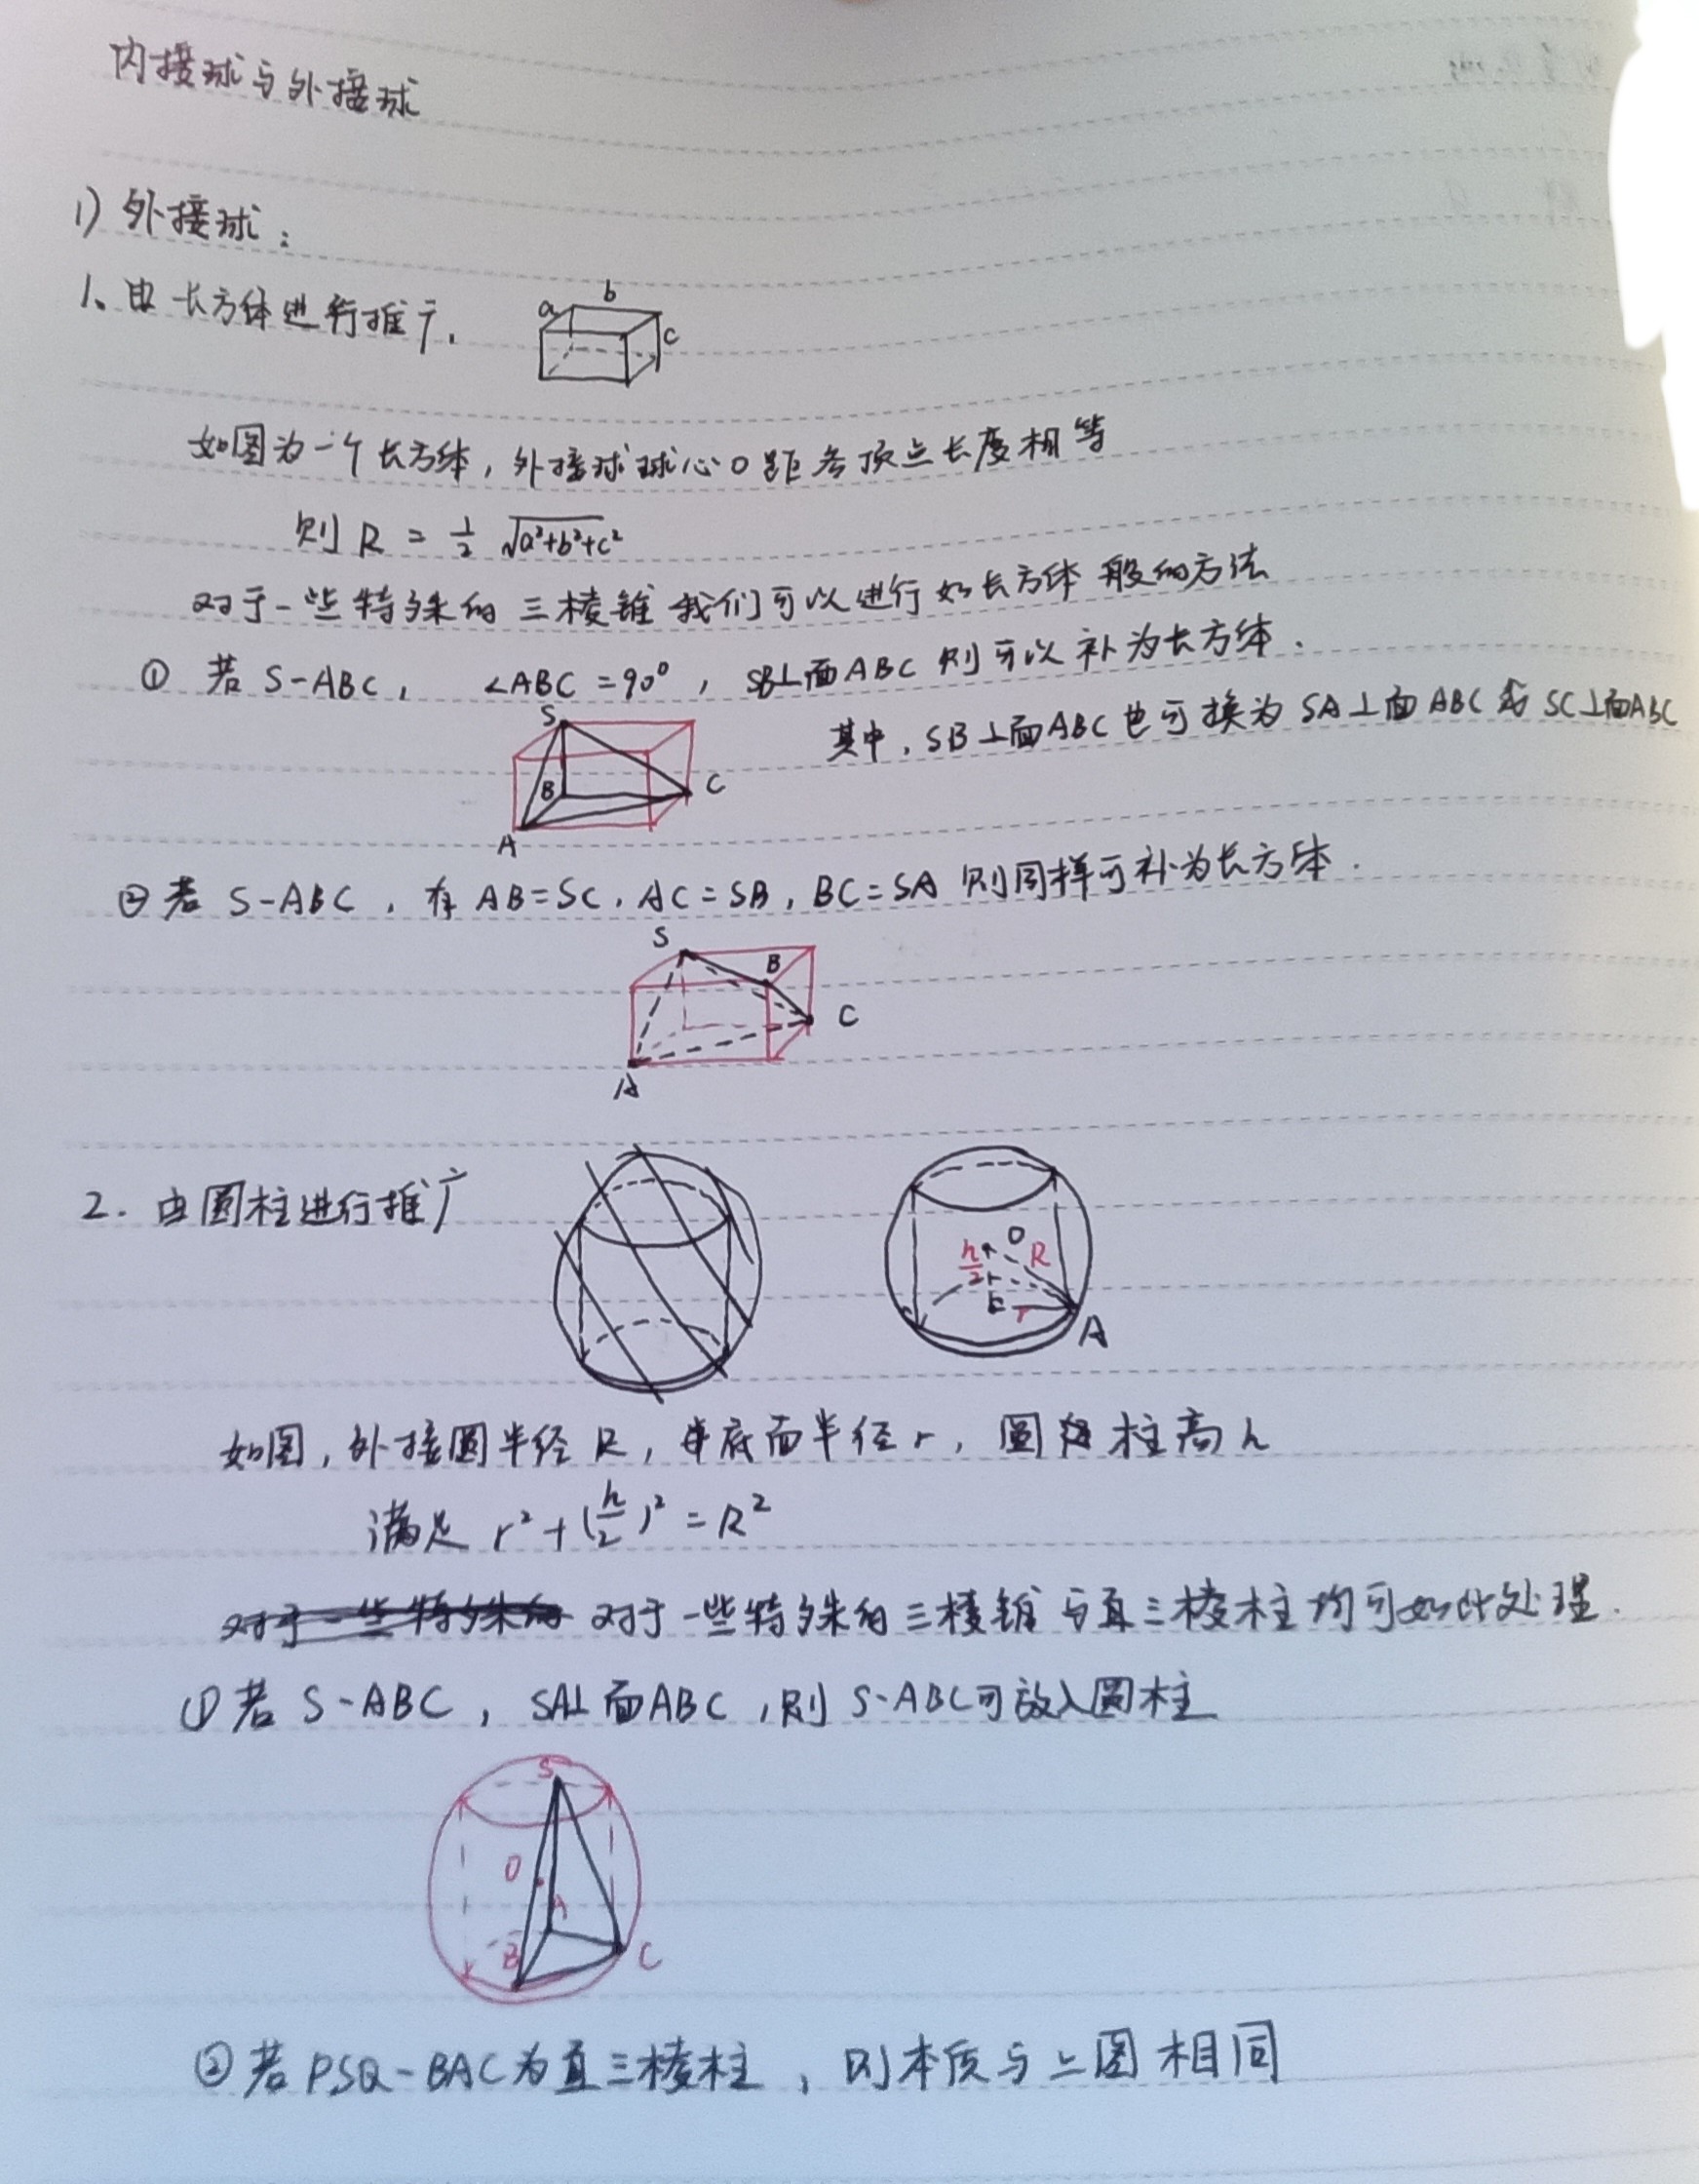 内接球与外接球
1) 外接球：
1、由长方体进行推广.
a b c
如图为一个长方体，外接球球心O距各顶点长度相等
则 R = 1/2 √(a²+b²+c²)
对于一些特殊的三棱锥我们可以进行如长方体一般的方法
① 若 S-ABC， ∠ABC = 90°， SB⊥面ABC 则可以补为长方体.
其中，SB⊥面ABC也可换为SA⊥面ABC或SC⊥面ABC
S
B C
A
② 若 S-ABC，有 AB=SC，AC=SB，BC=SA 则同样可补为长方体.
S
B
C
A
2. 由圆柱进行推广
O
h/2 R
r
A
如图，外接圆半径R，底面半径r，圆柱高h
满足 r² + (h/2)² = R²
对于一些特殊的 对于一些特殊的三棱锥与直三棱柱均可如此处理.
① 若 S-ABC，SA⊥面ABC，则 S-ABC可放入圆柱
S
O
A
B C
② 若PSQ-BAC为直三棱柱，则本质与上图相同